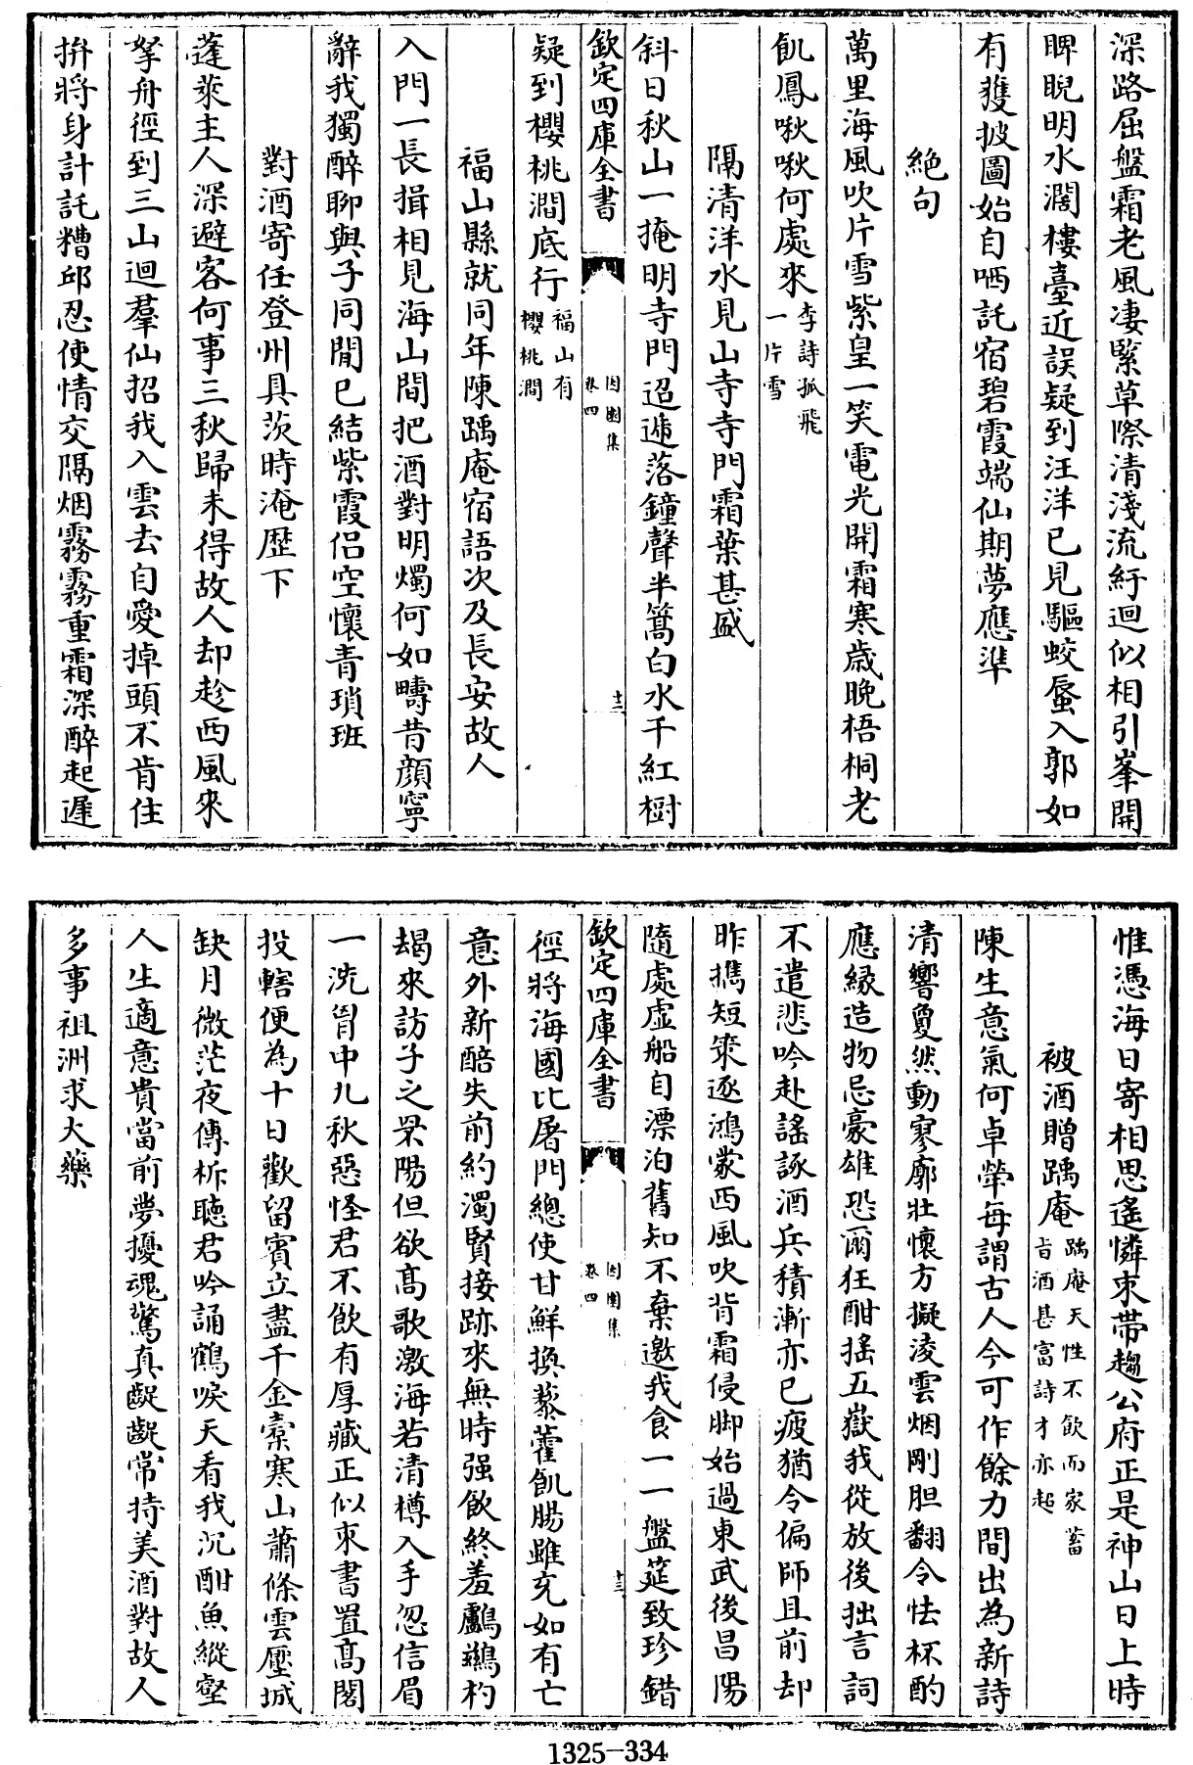 深路屈盤霜老風凄緊草際清淺流紆迴似相引峯開
睥睨明水濶樓臺近誤疑到汪洋已見驅蛟蜃入郭如
有獲披圖始自哂託宿碧霞端仙期夢應準
絶句
萬里海風吹片雪紫皇一笑電光開霜寒歳晚梧桐老
飢鳳啾啾何處來李詩孤飛
一片雪
隔清洋水見山寺寺門霜葉甚盛
斜日秋山一掩明寺門迢遞落鐘聲半篙白水千紅樹
欽定四庫全書
因園集
卷四
十二
疑到櫻桃澗底行福山有
櫻桃澗
福山縣就同年陳踽庵宿語次及長安故人
入門一長揖相見海山間把酒對明燭何如疇昔顔寧
辭我獨醉聊與子同閒已結紫霞侣空懷青瑣班
對酒寄任登州具茨時淹歴下
蓬萊主人深避客何事三秋歸未得故人却趁西風來
拏舟徑到三山迴羣仙招我入雲去自愛掉頭不肯住
拚將身計託糟邱忍使情交隔烟霧霧重霜深醉起遲
惟憑海日寄相思遙憐束帶趨公府正是神山日上時
被酒贈踽庵踽庵天性不飲而家蓄
旨酒甚富詩才亦超
陳生意氣何卓犖每謂古人今可作餘力間出為新詩
清響戛然動寥廓壯懷方擬凌雲烟剛胆翻令怯杯酌
應緣造物忌豪雄恐爾狂酣揺五嶽我從放後拙言詞
不遣悲吟赴謡諑酒兵積漸亦已疲猶令偏師且前却
昨攜短策逐鴻蒙西風吹背霜侵脚始過東武後昌陽
隨處虚船自漂泊舊知不棄邀我食一一盤筵致珍錯
欽定四庫全書
因園集
卷四
十三
徑將海國比屠門總使甘鮮換藜藿飢腸雖充如有亡
意外新醅失前約濁賢接跡來無時强飲終羞鸕鷀杓
朅來訪子之罘陽但欲高歌激海若清樽入手忽信眉
一洗胷中九秋惡怪君不飲有厚藏正似束書置高閣
投轄便為十日歡留賓立盡千金橐寒山蕭條雲壓城
缺月微茫夜傳柝聽君吟誦鶴唳天看我沉酣魚縱壑
人生適意貴當前夢擾魂驚真齷齪常持美酒對故人
多事祖洲求大藥
1325-334